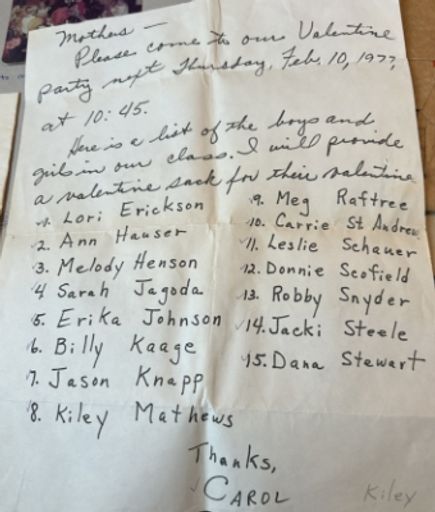 Mothers —
Please come to our Valentine
party next Thursday, Feb. 10, 1977,
at 10:45.
Here is a list of the boys and
girls in our class. I will provide
a valentine sack for their valentines
1. Lori Erickson
2. Ann Hauser
3. Melody Henson
4 Sarah Jagoda
5. Erika Johnson
6. Billy Kaage
7. Jason Knapp
8. Kiley Mathews
9. Meg Raftree
10. Carrie St Andrew
11. Leslie Schauer
12. Donnie Scofield
13. Robby Snyder
14. Jacki Steele
15. Dana Stewart
Thanks,
CAROL
Kiley